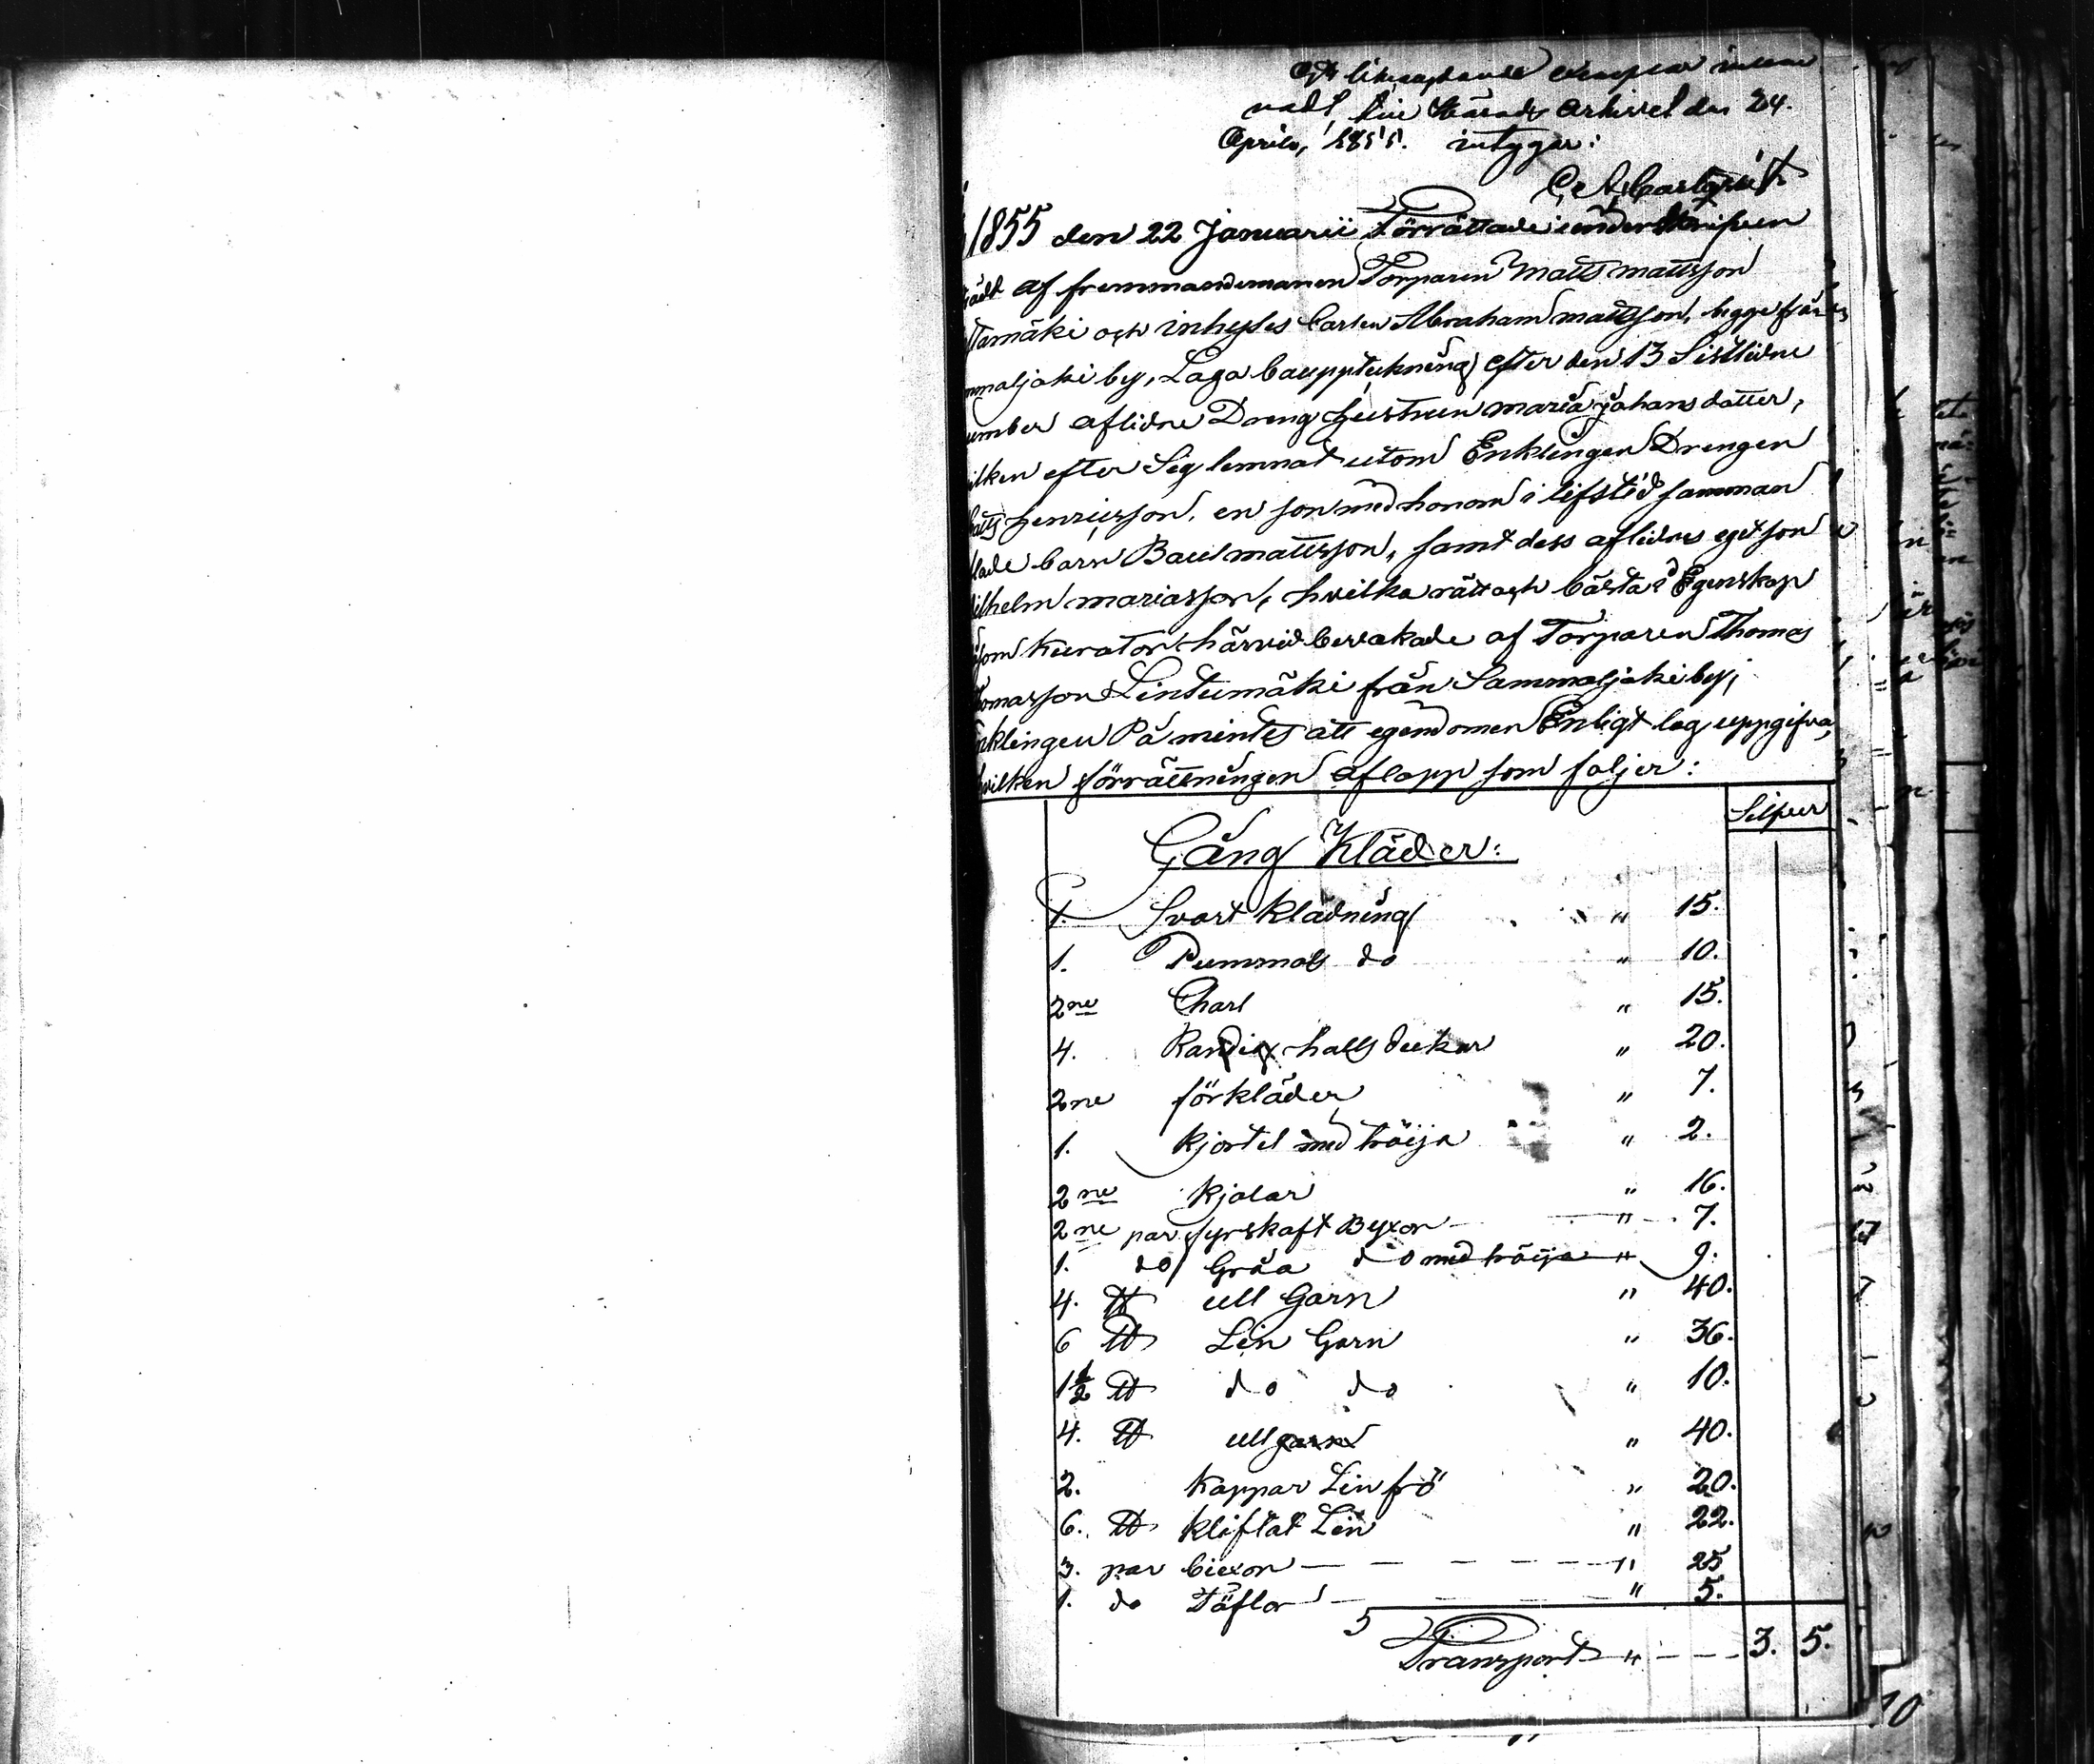 Ett likastydande exemplar inlem
nadt Härads Arkivet den 24.
April, 1855. intygar:
1855 den 22 Januarii Förrättade undertecknen
af fremmandemannen Torparen Matts mattsson
tamäki och inhyses Karlen Abraham mattsson, begge från
mmaljoki by, Laga bouppteckning efter den 13 Sistledne
ember aflidne Dreng hustrun maria johans dotter,
ilken efter Sig lemnat utom Enklingen Drengen
atts henricsson, en son med honom i lifstid samman
lade barn mattsson, samt dess aflidnes eget son
ilhelm mariasson, hvilka rätt och bästa i Egenskap
som Kurator härvid bevakade af Torparen Thomas
omasson Lintumäki från Sammaljoki by;
nklingen På mintes att egendomen Enligt lag uppgifva,
vilken förrättningen aflopp som foljer:
Silfver
Gång Kläder:
1. Svart Klädning " 15.
1. Pummols do " 10.
2ne Charl " 15.
4. Randig halls dukar " 20.
2ne förkläder " 7.
1. Kjortel med tröija " 2.
2ne Kjolar " 16.
2ne par fyrskaft Byxor " 7.
1. do Gråa do med tröija " 9.
4. ℔ ull Garn " 40.
6 ℔ Lin Garn " 36.
1½ ℔ do do " 10.
4. ℔ ull garn " 40.
2. Kappar Lin frö " 20.
6. ℔ Kliftat Lin " 22.
3. par " 25
1. do Töflor " 5.
Transport " 3. 5.
10